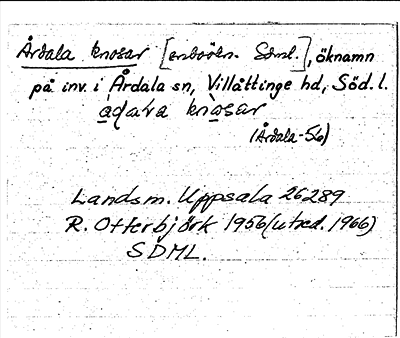 Årdala knosar [enboökn. Sdml.], öknamn
på inv. i Årdala sn, Villåttinge hd, Söd. l.
knosar
(Årdala-56)
Landsm. Uppsala 26289
R. Otterbjörk 1956 (utred. 1966)
SDML.